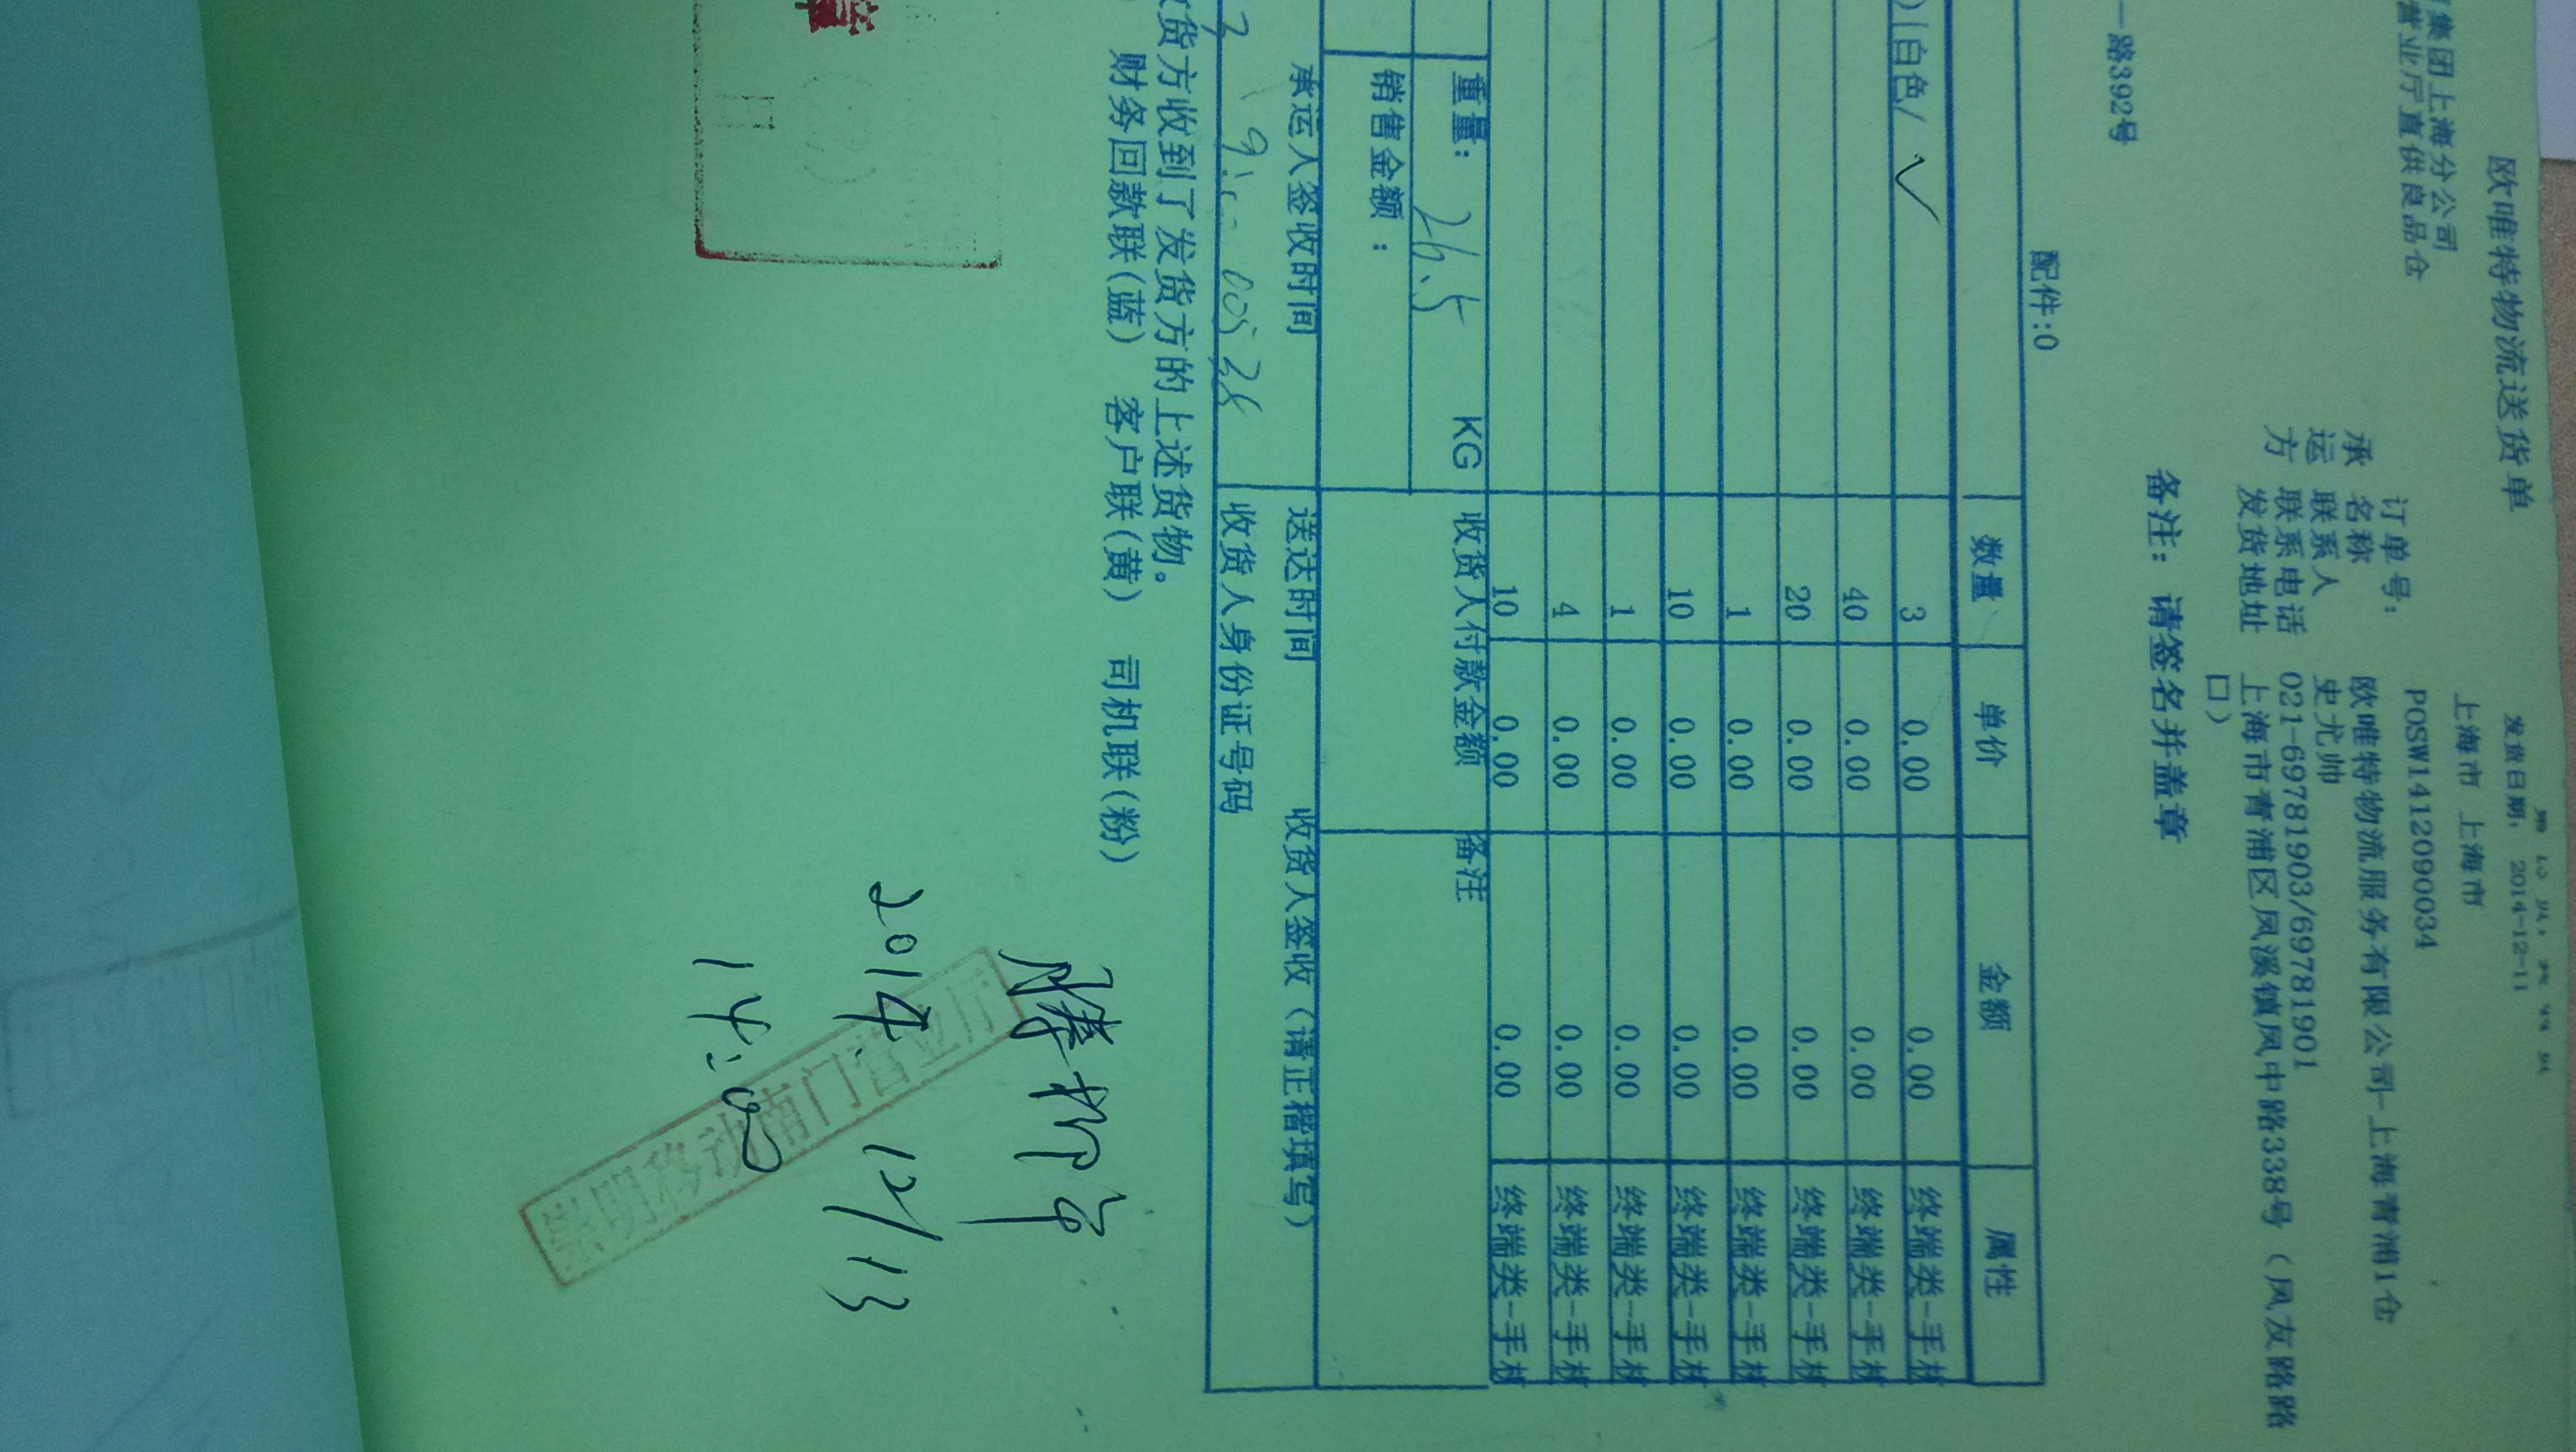 欧唯特物流送货单
发货日期: 2014-12-11
集团上海分公司
上海市 上海市
营业厅直供良品仓
订单号: POSW141209000034
承运方 名称 欧唯特物流服务有限公司-上海青浦1仓
联系人 史尤帅
联系电话 021-69781903/69781901
发货地址 上海市青浦区凤溪镇凤中路338号（凤友路路口）
一路392号
备注: 请签名并盖章
配件:0
数量 单价 金额 属性
白色/ ✓ 3 0.00 0.00 终端类-手机
40 0.00 0.00 终端类-手机
20 0.00 0.00 终端类-手机
1 0.00 0.00 终端类-手机
10 0.00 0.00 终端类-手机
1 0.00 0.00 终端类-手机
4 0.00 0.00 终端类-手机
10 0.00 0.00 终端类-手机
重量: 26.5 KG 收货人付款金额 备注
销售金额:
承运人签收时间 送达时间 收货人签收（请正楷填写）
收货人身份证号码
收货方收到了发货方的上述货物。
财务回款联(蓝) 客户联(黄) 司机联(粉)
2014. 12/13
14:00
崇明移动南门营业厅